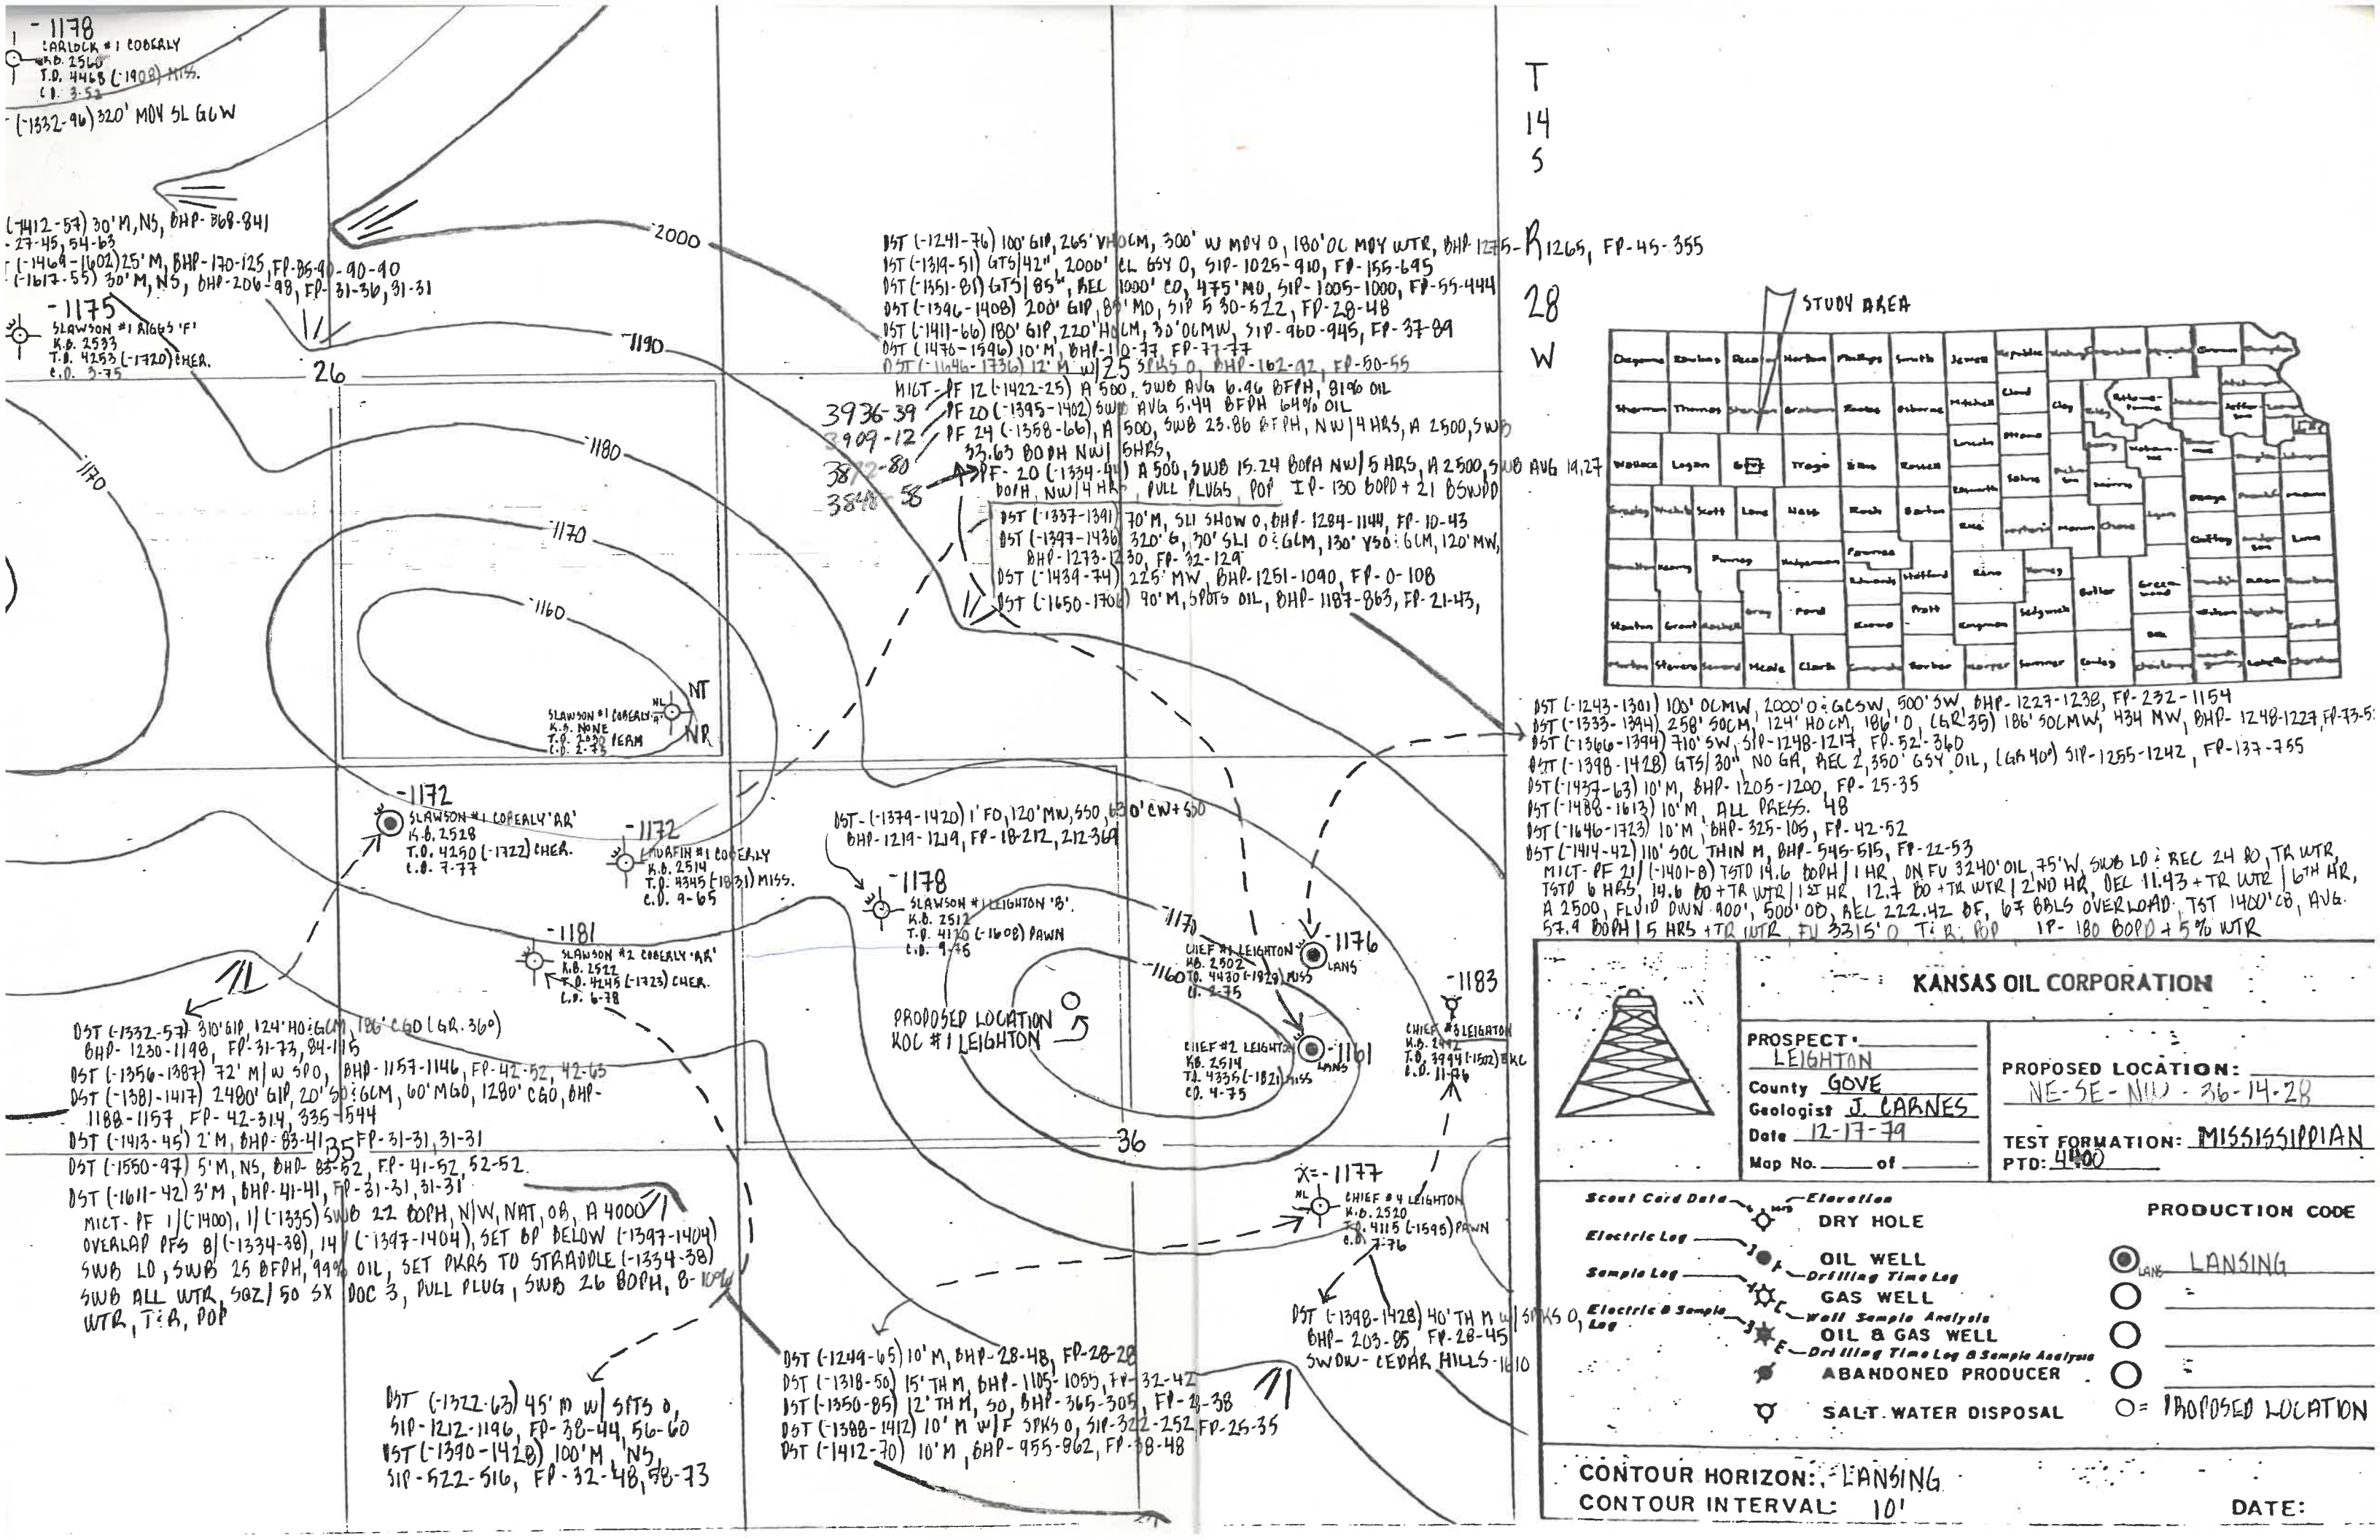 -1178
CARLOCK #1 COBERLY
K.B. 2560
T.D. 4468 (-1908) MISS.
C.D. 3-52
(-1332-96) 320' MDY SL GCW
(-1412-57) 30' M, NS, BHP-368-841
27-45, 54-63
(-1469-1602) 25' M, BHP-170-125, FP-85-90-90-90
(-1617-55) 30' M, NS, BHP-206-98, FP-31-36, 31-31
-1175
SLAWSON #1 RIGGS 'F'
K.B. 2533
T.D. 4253 (-1720) CHER.
C.D. 3-75
26
-2000
-1190
-1180
-1170
-1170
-1160
DST (-1241-76) 100' GIP, 265' VHOCM, 300' W MDY O, 180' OC MDY WTR, BHP 1275-1265, FP-45-355
DST (-1319-51) GTS/42", 2000' CL GSY O, SIP-1025-910, FP-155-695
DST (-1351-81) GTS/85", REC 1000' CO, 475' MO, SIP-1005-1000, FP-55-444
DST (-1396-1408) 200' GIP, 85' MO, SIP 530-522, FP-28-48
DST (-1411-66) 180' GIP, 220' HOCM, 30' OCMW, SIP-960-945, FP-37-89
DST (1476-1596) 10' M, BHP-110-77, FP-77-77
DST (-1646-1736) 12' M W/25 SPKS O, BHP-162-92, FP-50-55
MICT-PF 12 (-1422-25) A 500, SWB AVG 6.96 BFPH, 81% OIL
3936-39 PF 20 (-1395-1402) SWB AVG 5.44 BFPH 64% OIL
3909-12 PF 24 (-1358-66), A 500, SWB 23.86 BFPH, NW/4 HRS, A 2500, SWB
33.63 BOPH NW/5HRS,
3872-80 PF-20 (-1334-44) A 500, SWB 15.24 BOPH NW/5 HRS, A 2500, SWB AVG 19.27
3848-58 BOPH, NW/4 HRS, PULL PLUGS, POP IP-130 BOPD + 21 BSWPD
DST (-1337-1391) 70' M, SLI SHOW O, BHP-1284-1144, FP-10-43
DST (-1397-1436) 320' G, 30' SLI O&GCM, 130' VSO&GCM, 120' MW,
BHP-1273-1230, FP-32-129
DST (-1439-74) 225' MW, BHP-1251-1090, FP-0-108
DST (-1650-1706) 90' M, SPOTS OIL, BHP-1187-863, FP-21-43,
T
14
S
R
28
W
STUDY AREA
Cheyenne Rawlins Decatur Norton Phillips Smith Jewell Republic
Sherman Thomas Sheridan Graham Rooks Osborne Mitchell Cloud Clay
Wallace Logan Gove Trego Ellis Russell Lincoln Ottawa
Greeley Wichita Scott Lane Ness Rush Barton Ellsworth Saline
Hamilton Kearny Finney Hodgeman Pawnee Stafford Rice Reno Marion Chase
Stanton Grant Haskell Gray Ford Edwards Kiowa Pratt Kingman Sedgwick Butler
Morton Stevens Seward Meade Clark Comanche Barber Harper Sumner Cowley
DST (-1243-1301) 100' OCMW, 2000' O&GCSW, 500' SW, BHP-1227-1238, FP-232-1154
DST (-1333-1394) 258' SOCM, 124' HOCM, 186' O, (GR 35) 186' SOCMW, 434 MW, BHP-1248-1227, FP-73-5
DST (-1366-1394) 710' SW, SIP-1248-1217, FP-52-360
DST (-1398-1428) GTS/30", NO GA, REC 2,350' GSY OIL, (GR 40°) SIP-1255-1242, FP-137-755
DST (-1437-63) 10' M, BHP-1205-1200, FP-25-35
DST (-1488-1613) 10' M, ALL PRESS. 48
DST (-1646-1723) 10' M, BHP-325-105, FP-42-52
DST (-1414-42) 110' SOC THIN M, BHP-545-515, FP-22-53
MICT-PF 21/(-1401-8) TSTD 14.6 BOPH/1 HR, ON FU 3240' OIL, 75' W, SWB LD & REC 24 BO, TR WTR,
TSTD 6 HRS, 14.6 BO + TR WTR/1ST HR, 12.7 BO + TR WTR/2ND HR, DEC 11.43 + TR WTR/6TH HR,
A 2500, FLUID DWN 900', 500' OB, REC 222.42 BF, 67 BBLS OVERLOAD, TST 1400' OB, AVG.
57.9 BOPH/5 HRS + TR WTR, FU 3315' O T&R, POP IP-180 BOPD + 5% WTR
NT
NL
SLAWSON #1 COBERLY 'A'
K.B. NONE
T.D. 2030 PERM
C.D. 2-73
NR
-1172
SLAWSON #1 COBERLY 'AR'
K.B. 2528
T.D. 4250 (-1722) CHER.
C.D. 7-77
-1172
MURFIN #1 COBERLY
K.B. 2514
T.D. 4345 (-1831) MISS.
C.D. 9-65
-1181
SLAWSON #2 COBERLY 'AR'
K.B. 2522
T.D. 4245 (-1723) CHER.
C.D. 6-78
DST-(-1379-1420) 1' FO, 120' MW, 550, 630' CW + 550
BHP-1219-1219, FP-18-212, 212-369
-1178
SLAWSON #1 LEIGHTON 'B'.
K.B. 2512
T.D. 4120 (-1608) PAWN
C.D. 9-75
-1170
-1160
CHIEF #1 LEIGHTON
K.B. 2502
T.D. 4430 (-1928) MISS
C.D. 2-75
-1176
LANS
PROPOSED LOCATION
KOC #1 LEIGHTON
CHIEF #2 LEIGHTON
K.B. 2514
T.D. 4335 (-1821) MISS
CD. 4-75
-1161
LANS
-1183
CHIEF #3 LEIGHTON
K.B. 2492
T.D. 3994 (-1502) BKC
C.D. 11-76
36
X=-1177
NL
CHIEF #4 LEIGHTON
K.B. 2520
T.D. 4115 (-1595) PAWN
C.D. 7-76
DST (-1332-57) 310' GIP, 124' HO&GCM, 186' CGO (GR. 36°)
BHP-1230-1198, FP-31-73, 84-115
DST (-1356-1387) 72' M/W SPO, BHP-1157-1146, FP-42-52, 42-63
DST (-1381-1417) 2480' GIP, 20' SO&GCM, 60' MGO, 1280' CGO, BHP-
1188-1157, FP-42-314, 335-544
DST (-1413-45) 2' M, BHP-83-41, FP-31-31, 31-31
35
DST (-1550-97) 5' M, NS, BHP-83-52, FP-41-52, 52-52.
DST (-1611-42) 3' M, BHP-41-41, FP-31-31, 31-31
MICT-PF 1/(-1400), 1/(-1335) SWB 22 BOPH, N/W, NAT, OB, A 4000
OVERLAP PFS 8/(-1334-38), 14/(-1397-1404), SET BP BELOW (-1397-1404)
SWB LD, SWB 25 BFPH, 99% OIL, SET PKRS TO STRADDLE (-1334-38)
SWB ALL WTR, SQZ/50 SX DOC 3, PULL PLUG, SWB 26 BOPH, 8-10%
WTR, T&R, POP
DST (-1322-63) 45' M W/ SPTS O,
SIP-1212-1196, FP-38-44, 56-60
DST (-1390-1428) 100' M, NS,
SIP-522-516, FP-32-48, 58-73
DST (-1249-65) 10' M, BHP-28-48, FP-28-28
DST (-1318-50) 15' TH M, BHP-1105-1055, FP-32-42
DST (-1350-85) 12' TH M, SO, BHP-365-305, FP-28-38
DST (-1388-1412) 10' M W/F SPKS O, SIP-322-252, FP-25-35
DST (-1412-70) 10' M, BHP-955-862, FP-38-48
DST (-1398-1428) 40' TH M W/ SPKS O,
BHP-203-85, FP-28-45
SWDW-CEDAR HILLS-1610
KANSAS OIL CORPORATION
PROSPECT:
LEIGHTON
County GOVE
Geologist J. CARNES
Date 12-17-79
Map No. of
PROPOSED LOCATION:
NE-SE-NW-36-14-28
TEST FORMATION: MISSISSIPPIAN
PTD: 4400
Scout Card Data
Elevation
DRY HOLE
Electric Log
OIL WELL
Drilling Time Log
Sample Log
GAS WELL
Well Sample Analysis
Electric & Sample Log
OIL & GAS WELL
Drilling Time Log & Sample Analysis
ABANDONED PRODUCER
SALT WATER DISPOSAL
PRODUCTION CODE
LANS LANSING
O = PROPOSED LOCATION
CONTOUR HORIZON: LANSING
CONTOUR INTERVAL: 10'
DATE: